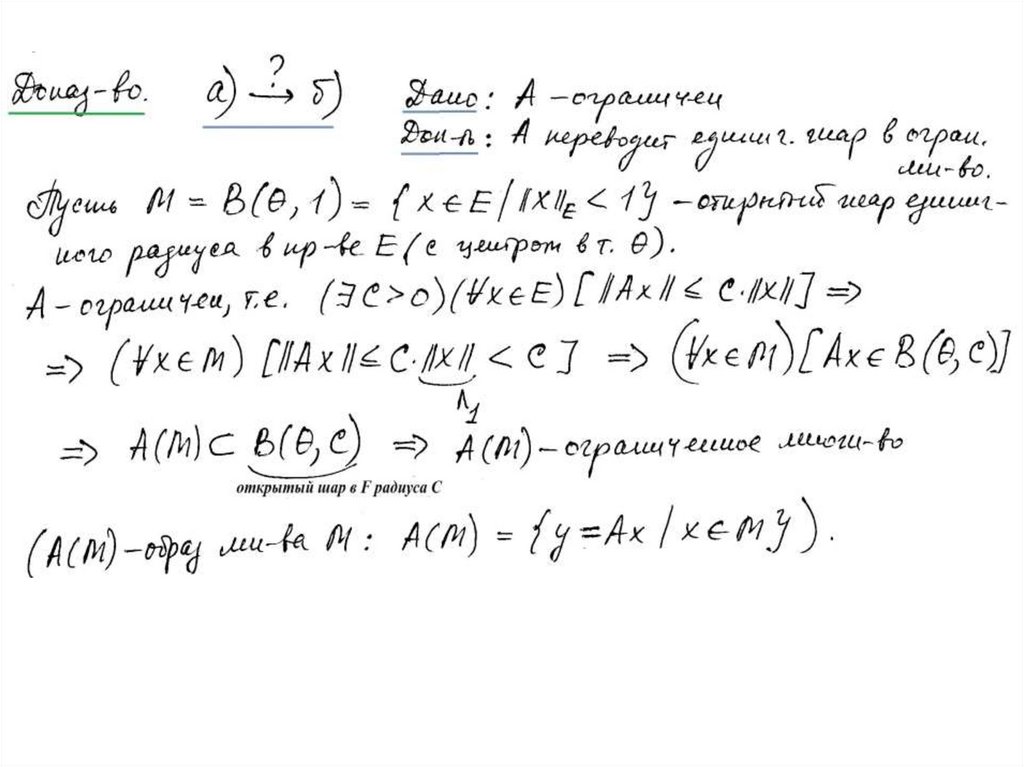 Доказ-во. а) ?→ б) Дано: А – ограничен
Док-ть: А переводит единич. шар в огран. мн-во.
Пусть M = B(θ, 1) = { x ∈ E | ‖x‖_E < 1 } – открытый шар единич-
ного радиуса в пр-ве E (с центром в т. θ).
А – ограничен, т.е. (∃C > 0)(∀x ∈ E) [‖Ax‖ ≤ C·‖x‖] ⇒
⇒ (∀x ∈ M) [‖Ax‖ ≤ C·‖x‖ < C] ⇒ (∀x ∈ M) [Ax ∈ B(θ, C)]
∧
1
⇒ A(M) ⊂ B(θ, C) ⇒ A(M) – ограниченное множ-во
открытый шар в F радиуса C
(A(M) – образ мн-ва M: A(M) = {y = Ax | x ∈ M}).